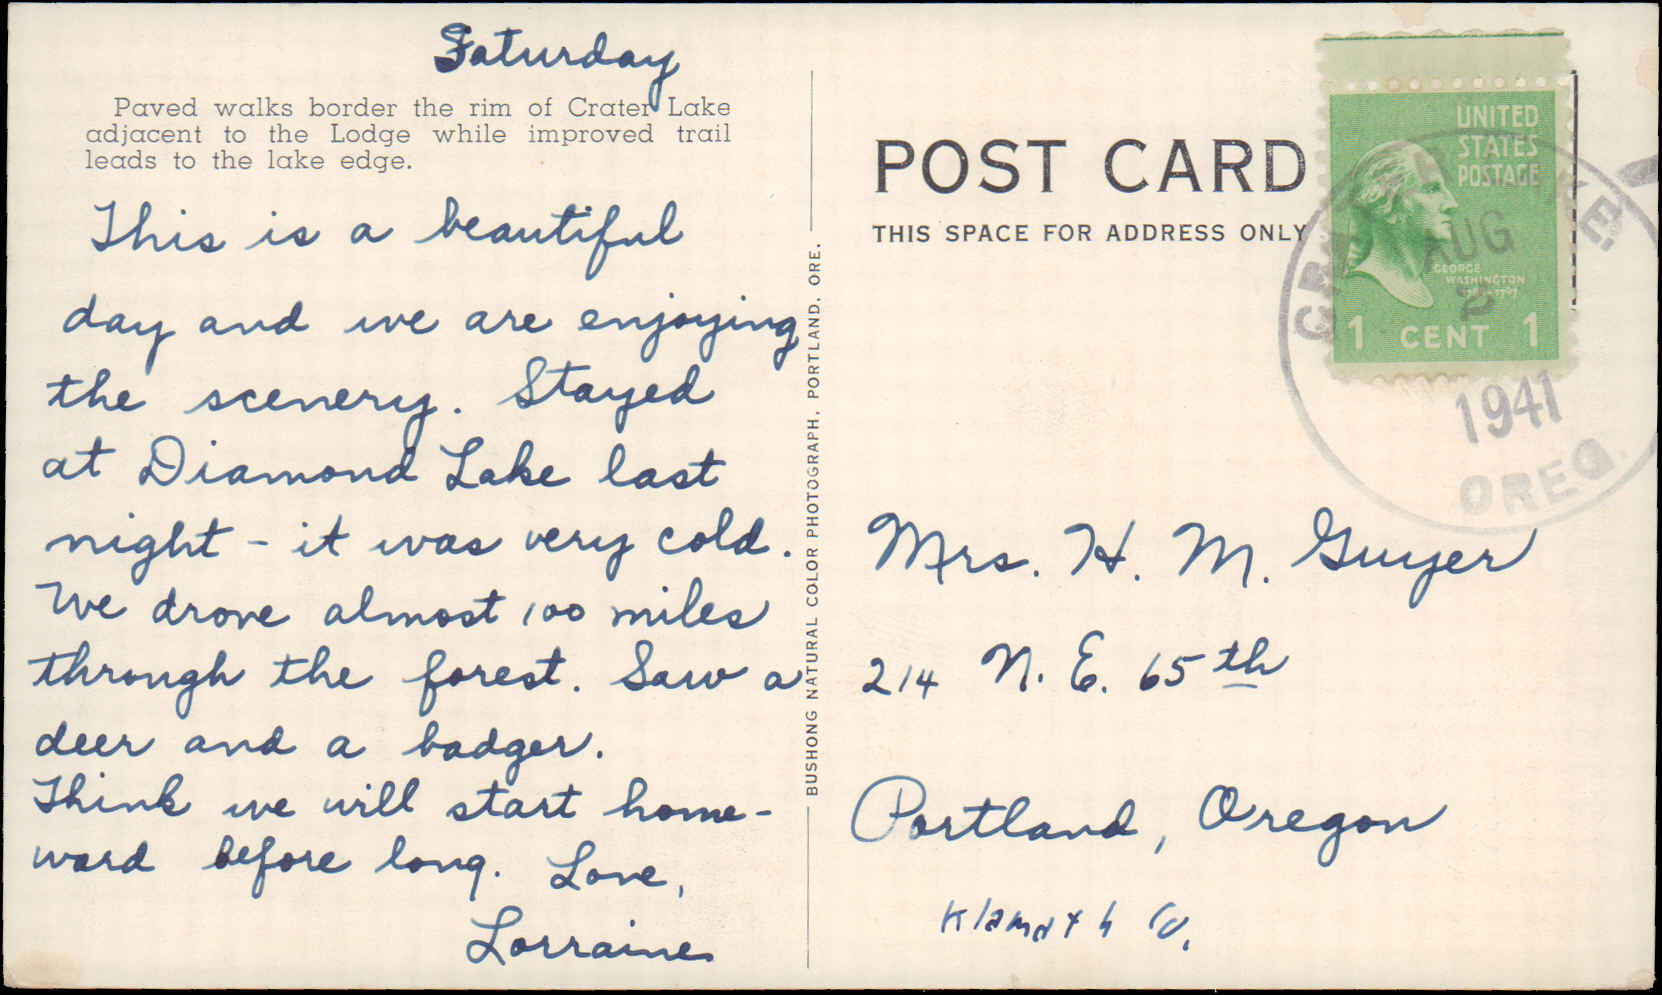 Saturday
Paved walks border the rim of Crater Lake
adjacent to the Lodge while improved trail
leads to the lake edge.
This is a beautiful
day and we are enjoying
the scenery. Stayed
at Diamond Lake last
night - it was very cold.
We drove almost 100 miles
through the forest. Saw a
deer and a badger.
Think we will start home-
ward before long. Love,
Lorraine
BUSHONG NATURAL COLOR PHOTOGRAPH, PORTLAND, ORE.
POST CARD
THIS SPACE FOR ADDRESS ONLY
UNITED
STATES
POSTAGE
GEORGE
WASHINGTON
1 CENT 1
CRATER LAKE,
AUG
2
1941
OREG.
Mrs. H. M. Guyer
214 N. E. 65th
Portland, Oregon
Klamath Co.